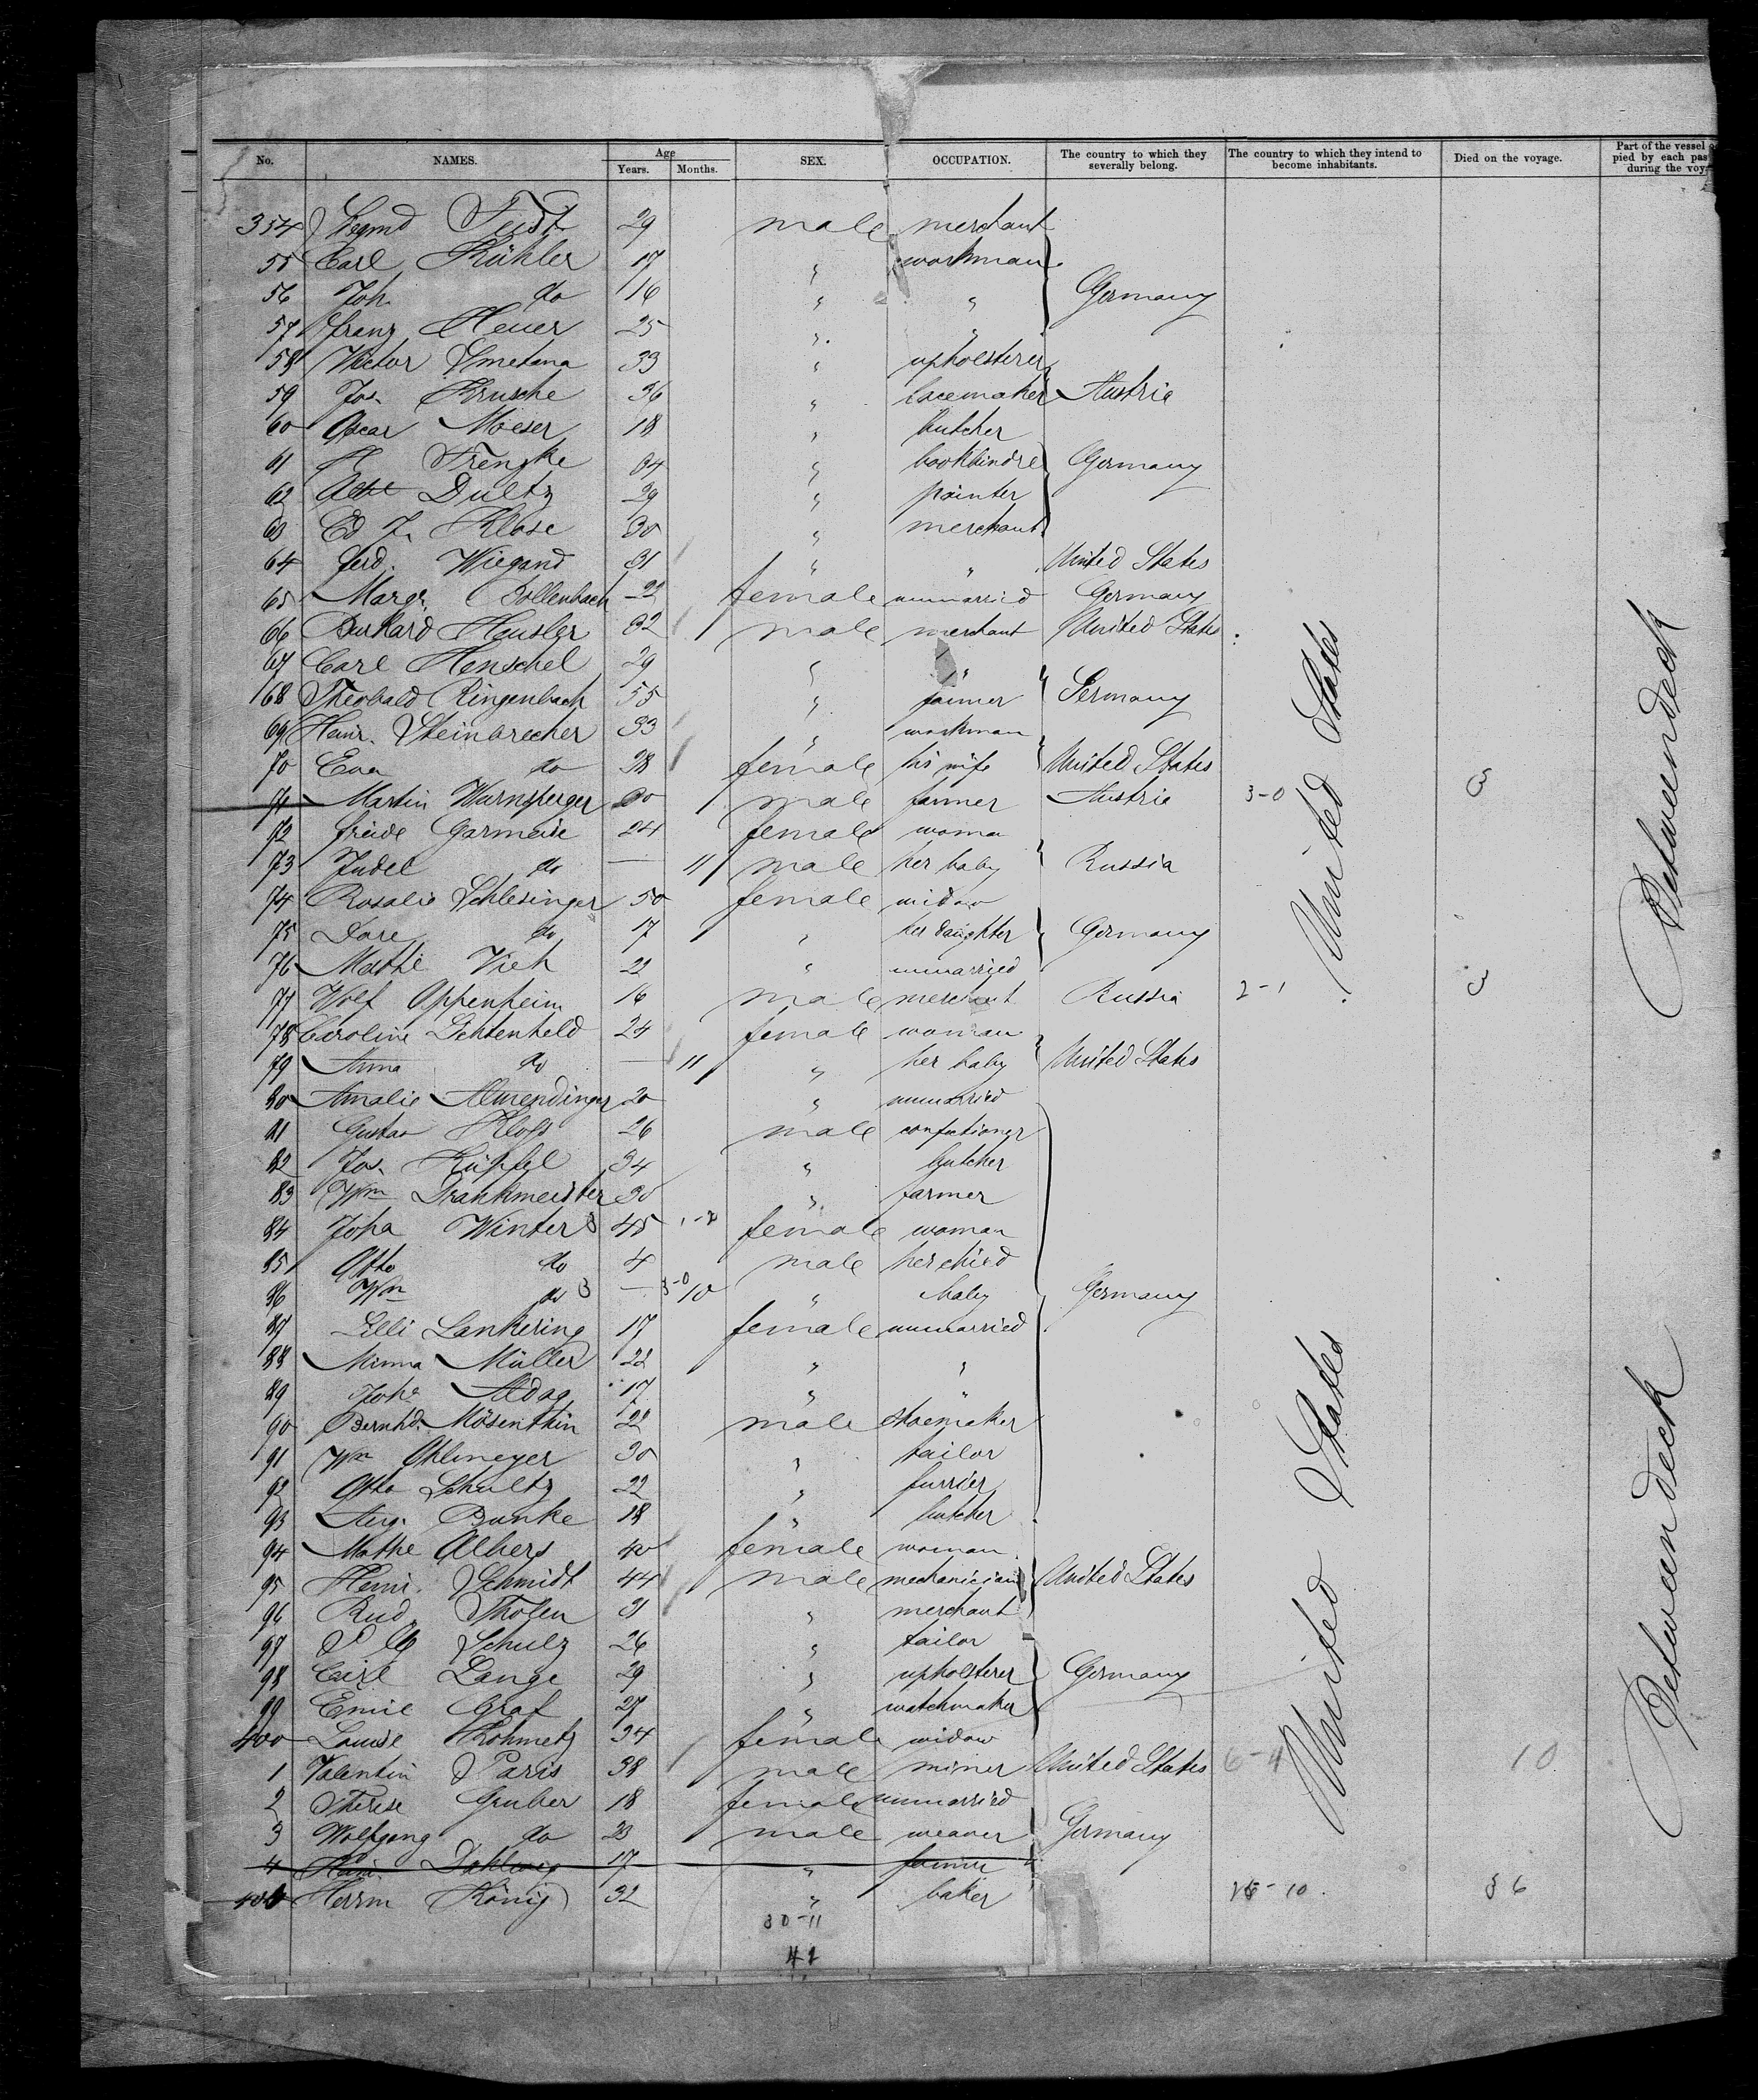 No. NAMES. Age Years. Months. SEX. OCCUPATION. The country to which they severally belong. The country to which they intend to become inhabitants. Died on the voyage. Part of the vessel pied by each pas during the voy
354 Segmd 29 male merchant
55 Carl Kühler 17 " workman
56 Joh. do 16 " " Germany
57 Franz Heuer 25 " "
58 Victor Smetana 33 " upholsterer
59 Jos. Krusche 36 " lacemaker Austria
60 Oscar Moeser 18 " butcher
61 H Frenzke 34 " bookbindre Germany
62 Dultz 29 " painter
63 Ed J. Klose 30 " merchant
64 Ferd. Wiegand 31 " " United States
65 Margr. Bollenbach 22 female unmarried Germany
66 Burkard Heusler 32 male merchant United States
67 Carl Henschel 29 " "
68 Theobald Ringenbach 55 " farmer Germany
69 Heinr. Steinbrecher 33 " workman
70 Eva do 38 female his wife United States
71 Martin Wurnsperger 20 male farmer Austria 3-0 3
72 Freide Garmeise 24 female woman
73 Judel do — 11 male her baby Russia
74 Rosalie Schlesinger 50 female widow
75 Dore do 17 " her daughter Germany
76 Mathe Vieh 22 " unmarried
77 Wolf Oppenheim 16 male merchant Russia 2-1 3
78 Caroline Lichtenheld 24 female woman
79 Anna do — 11 " her baby United States
80 Amalie Almendinger 20 " unmarried
81 Gustav Kloss 26 male confectioner
82 Jos. Küpfel 34 " butcher
83 Wm Drankmeister 30 " farmer
84 Joha Winter 45 female woman
85 Otto do 4 male her child
86 Wm do 3 — 3-0 10 " baby Germany
87 Lilli Lankering 17 female unmarried
88 Minna Müller 22 " "
89 Joha Aldag 17 " "
90 Bernhd. Mösenthin 22 male shoemaker
91 Wm Ohlmeyer 30 " tailor
92 Otto Schultz 22 " furrier
93 Aug. Bunke 18 " butcher
94 Mathe Albers 40 female woman
95 Heinr. Schmidt 44 male mechanician United States
96 Rud. Tholen 31 " merchant
97 Schulz 26 " tailor
98 Carl Lange 29 " upholsterer Germany
99 Emil Graf 27 " watchmaker
400 Louise Kohmetz 34 female widow
1 Valentin Paris 38 male miner United States 6-4 10
2 Therese Gruber 18 female unmarried
3 Wolfgang do 23 male weaver Germany
4 Heinr. 17 " farmer
Herrm König 32 " baker 10 36
30-11
41
United States
United States
Between deck
Between deck